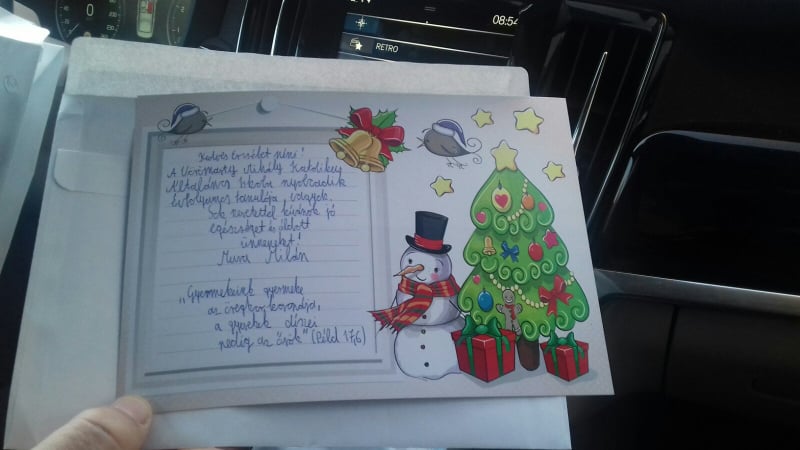 08:54
RETRO
Kedves Erzsébet néni!
A Vörösmarty Mihály Katolikus
Általános Iskola nyolcadik
évfolyamos tanulója vagyok.
Sok szeretettel kívánok jó
egészséget és áldott
ünnepeket!
Milán
„Gyermekeink gyermeke
az öregkor koronája,
a gyerekek díszei
pedig az ősök" (Péld 17,6)